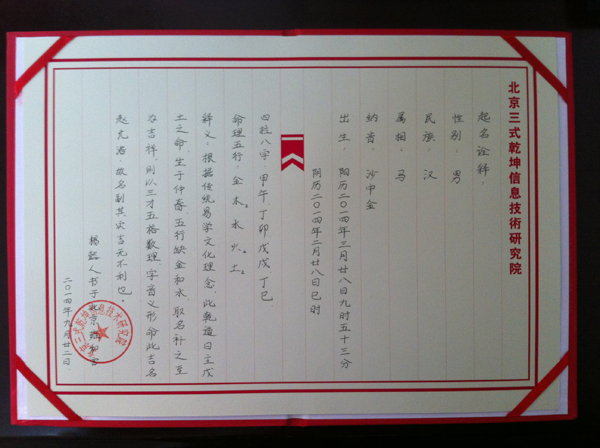 北京三式乾坤信息技術研究院
起名诠释：
性别：男
民族：汉
属相：马
纳音：沙中金
出生：阳历二〇一四年三月廿八日九时五十三分
阴历二〇一四年二月廿八日巳时
四柱八字：甲午、丁卯、戊戌、丁巳
命理五行：金。木。水。火。土。
释义：根据传统易学文化理念，此乾造日主戊
土之命，生于仲春，五行缺金和水，取名补之至
为吉祥，则以三才五格数理，字音义形命此吉名
赵 君，故名副其实吉无不利也。
人书于北京
二〇一四年九月廿二日
北京三式乾坤信息技术研究院